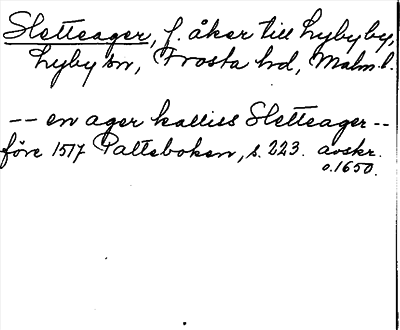 Sletteager, f. åker till Hyby by,
Hyby sn, Frosta hd, Malm. l.
-- en ager kalliss Sletteager --
före 1517 Palteboken, s. 223. avskr.
o. 1650.